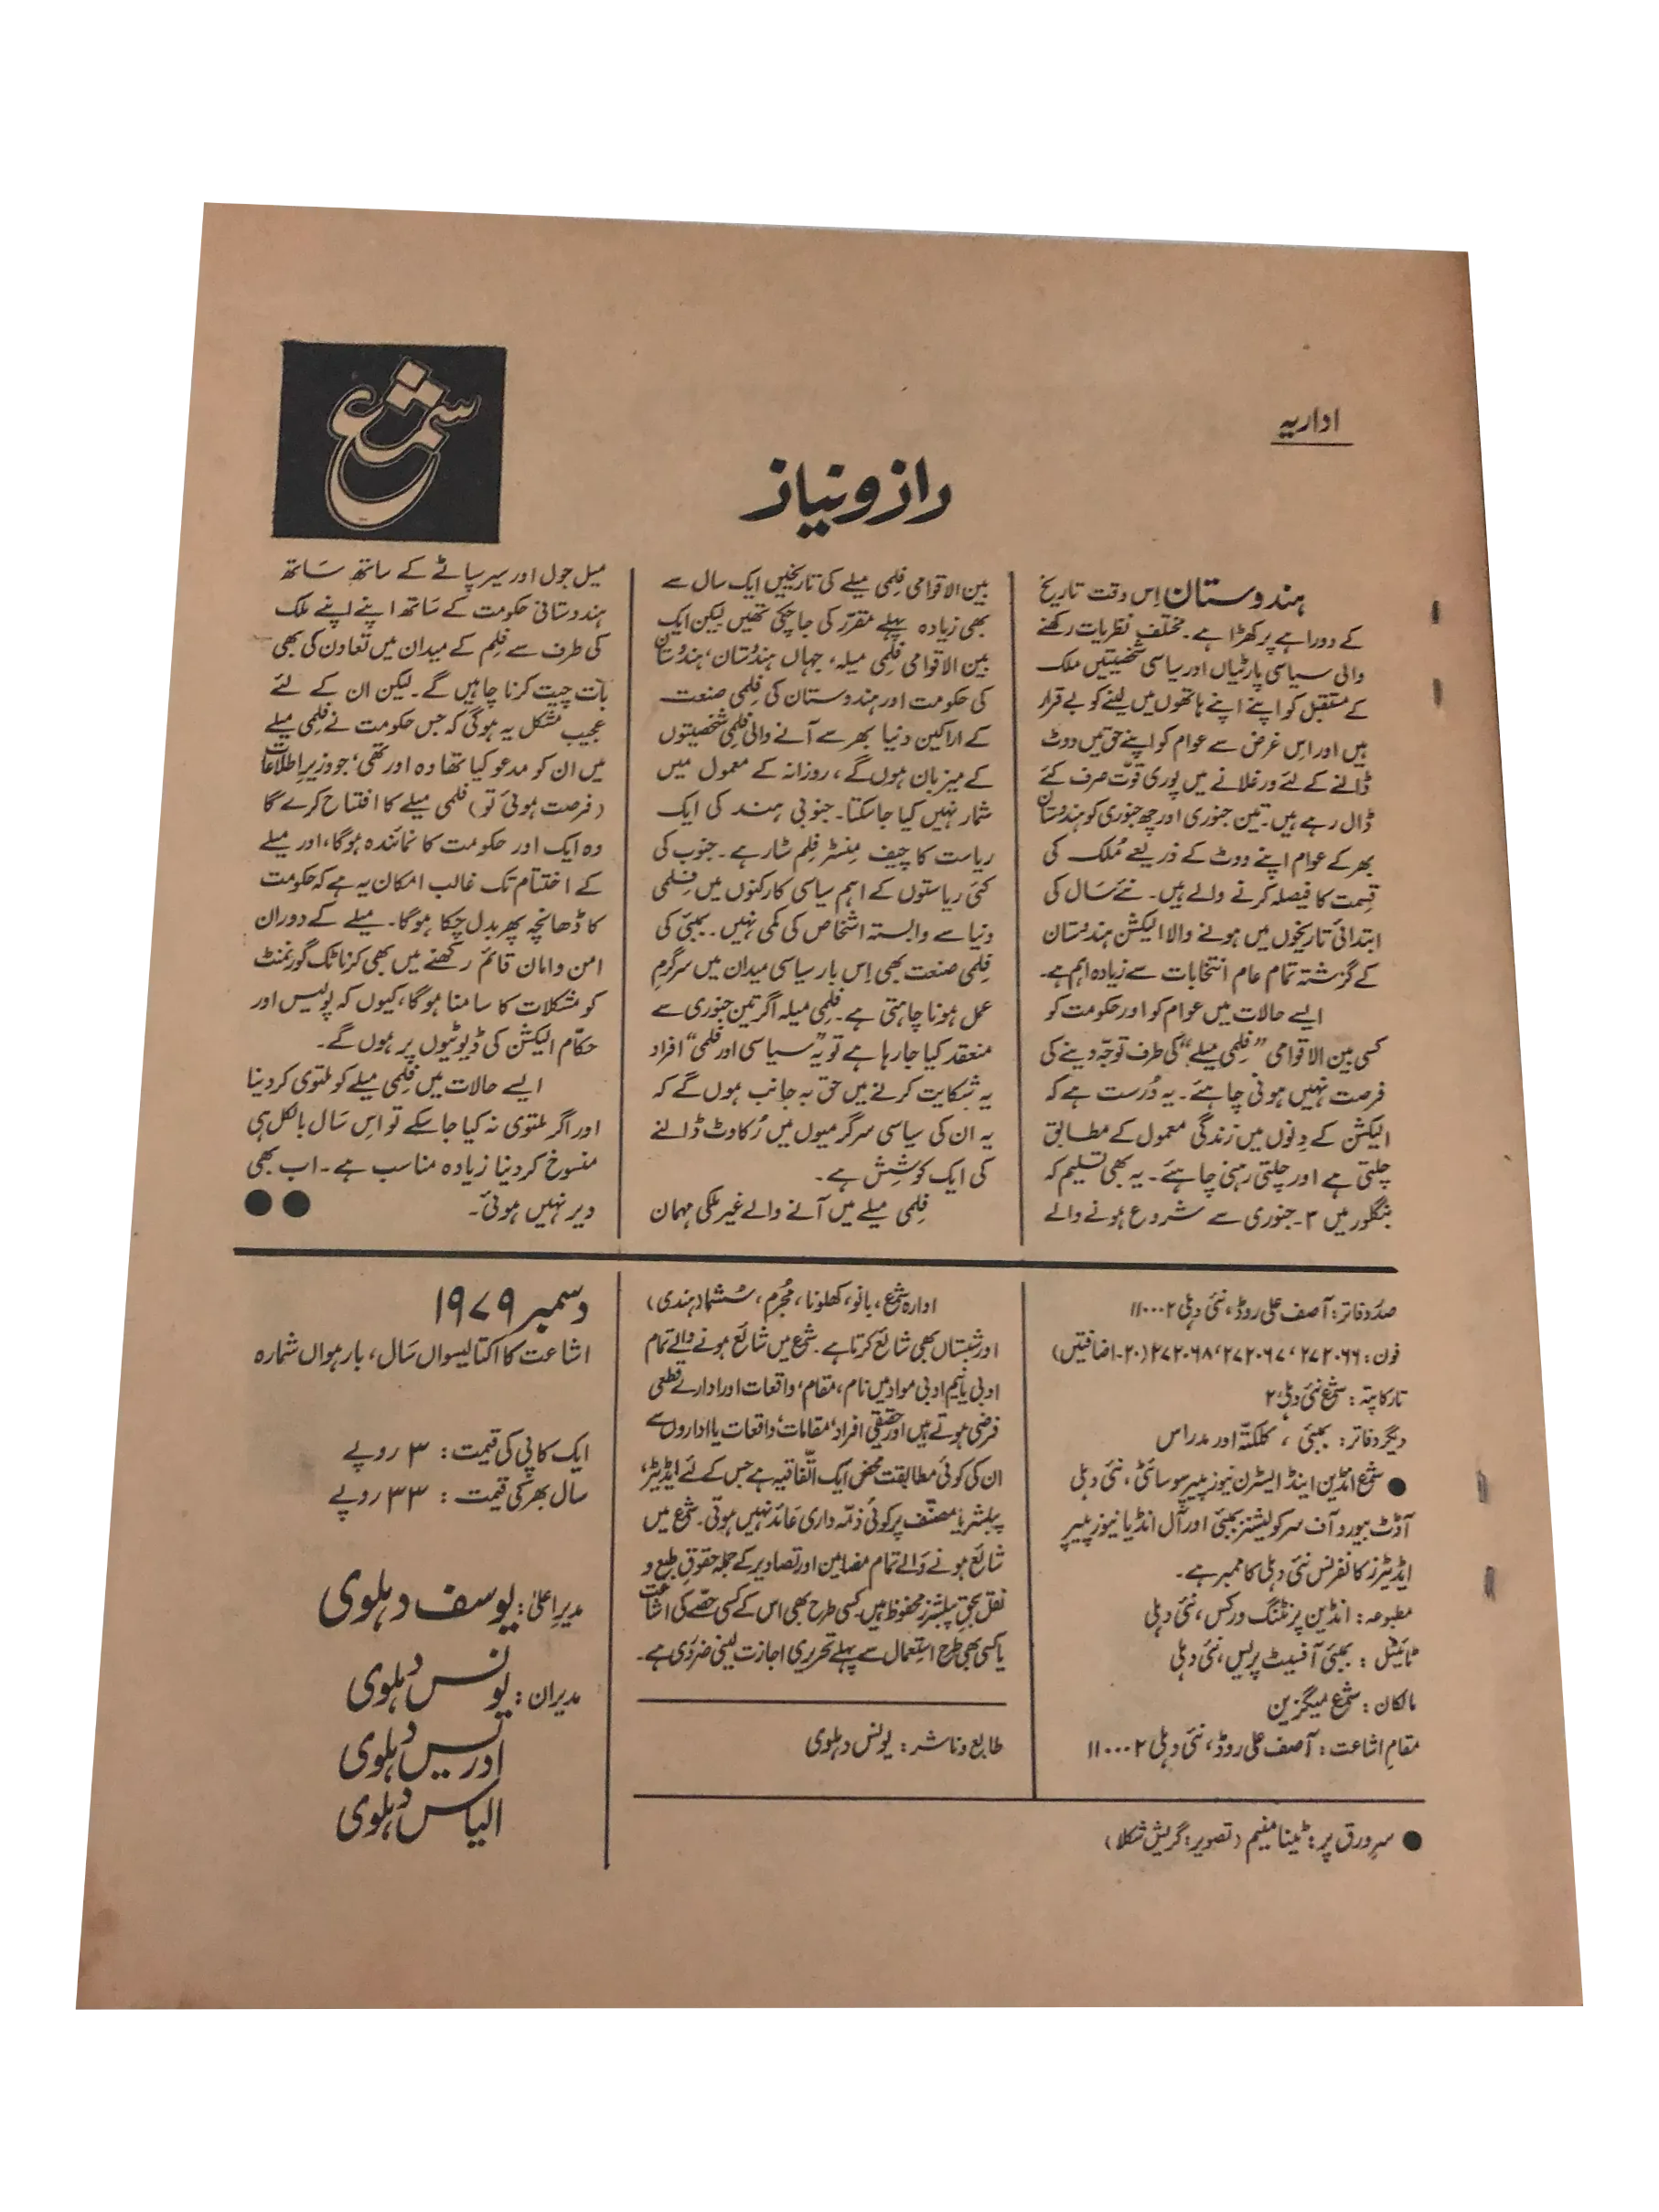 اداریہ
شمع
راز و نیاز
ہندوستان اِس وقت تاریخ
کے دوراہے پر کھڑا ہے۔ مختلف نظریات رکھنے
والی سیاسی پارٹیاں اور سیاسی شخصیتیں ملک
کے مستقبل کو اپنے اپنے ہاتھوں میں لینے کو بے قرار
ہیں اور اِس غرض سے عوام کو اپنے حق میں ووٹ
ڈالنے کے لئے ورغلانے میں پوری قوّت صرف کئے
ڈال رہے ہیں۔ تین جنوری اور چھ جنوری کو ہندوستان
بھر کے عوام اپنے ووٹ کے ذریعے مُلک کی
قِسمت کا فیصلہ کرنے والے ہیں۔ نئے سَال کی
ابتدائی تاریخوں میں ہونے والا الیکشن ہندوستان
کے گزشتہ تمام عام انتخابات سے زیادہ اہم ہے۔
ایسے حالات میں عوام کو اور حکومت کو
کسی بین الاقوامی ”فِلمی میلے“ کی طرف توجّہ دینے کی
فرصت نہیں ہونی چاہئے۔ یہ دُرست ہے کہ
الیکشن کے دِنوں میں زندگی معمول کے مطابق
چلتی ہے اور چلتی رہنی چاہئے۔ یہ بھی تسلیم کہ
بنگلور میں ۳۔ جنوری سے شروع ہونے والے
بین الاقوامی فِلمی میلے کی تاریخیں ایک سال سے
بھی زیادہ پہلے مقرّر کی جا چکی تھیں لیکن ایک
بین الاقوامی فلمی میلہ، جہاں ہندوستان، ہندوستان
کی حکومت اور ہندوستان کی فِلمی صنعت
کے اراکین دنیا بھر سے آنے والی فلمی شخصیتوں
کے میزبان ہوں گے، روزانہ کے معمول میں
شمار نہیں کیا جاسکتا۔ جنوبی ہند کی ایک
ریاست کا چیف مِنسٹر فِلم سٹار ہے۔ جنوب کی
کئی ریاستوں کے اہم سیاسی کارکنوں میں فِلمی
دنیا سے وابستہ اشخاص کی کمی نہیں۔ بمبئی کی
فِلمی صنعت بھی اِس بار سیاسی میدان میں سرگرمِ
عمل ہونا چاہتی ہے۔ فِلمی میلہ اگر تین جنوری سے
منعقد کیا جا رہا ہے تو یہ ”سیاسی اور فلمی“ افراد
یہ شکایت کرنے میں حق بہ جانب ہوں گے کہ
یہ ان کی سیاسی سرگرمیوں میں رُکاوٹ ڈالنے
کی ایک کوشِش ہے۔
فِلمی میلے میں آنے والے غیر ملکی مہمان
میل جول اور سیر سپاٹے کے ساتھ سَاتھ
ہندوستانی حکومت کے سَاتھ اپنے اپنے ملک
کی طرف سے فِلم کے میدان میں تعاون کی بھی
بات چیت کرنا چاہیں گے۔ لیکن ان کے لئے
عجیب مشکل یہ ہوگی کہ جس حکومت نے فلمی میلے
میں ان کو مدعو کیا تھا وہ اور تھی، جو وزیرِ اطلاعات
(فرصت ہوئی تو) فلمی میلے کا افتتاح کرے گا
وہ ایک اور حکومت کا نمائندہ ہوگا، اور میلے
کے اختتام تک غالب امکان یہ ہے کہ حکومت
کا ڈھانچہ پھر بدل چکا ہوگا۔ میلے کے دوران
امن و امان قائم رکھنے میں بھی کرناٹک گورنمنٹ
کو مشکلات کا سامنا ہوگا، کیوں کہ پولیس اور
حکّام الیکشن کی ڈیوٹیوں پر ہوں گے۔
ایسے حالات میں فِلمی میلے کو ملتوی کر دینا
اور اگر ملتوی نہ کیا جا سکے تو اس سَال بالکل ہی
منسوخ کر دینا زیادہ مناسب ہے۔ اب بھی
دیر نہیں ہوئی۔ ●●
صدر دفاتر: آصف علی روڈ، نئی دہلی ۱۱۰۰۰۲
فون: ۲۷۲۰۶۶، ۲۷۲۰۶۷، ۲۷۲۰۶۸ (۲۰۔ اضافتیں)
تار کا پتہ: شمع نئی دہلی ۲
دیگر دفاتر: بمبئی، کلکتّہ اور مدراس
● شمع انڈین اینڈ ایسٹرن نیوز پیپر سوسائٹی، نئی دہلی
آڈٹ بیورو آف سرکولیشنز بمبئی اور آل انڈیا نیوز پیپر
ایڈیٹرز کانفرنس نئی دہلی کا ممبر ہے۔
مطبوعہ: انڈین پرنٹنگ ورکس، نئی دہلی
ٹائیٹل: بمبئی آفسیٹ پریس، نئی دہلی
مالکان: شمع میگزین
مقامِ اشاعت: آصف علی روڈ، نئی دہلی ۱۱۰۰۰۲
● سرورق پر: ٹینا منیم (تصویر: گریش شکلا)
ادارہ شمع، بانو، کھلونا، مجرم، سُشما (ہندی)
اور شبستاں بھی شائع کرتا ہے۔ شمع میں شائع ہونے والے تمام
ادبی یا نیم ادبی مواد میں نام، مقام، واقعات اور ادارے قطعی
فرضی ہوتے ہیں اور حقیقی افراد، مقامات، واقعات یا اداروں سے
ان کی کوئی مطابقت محض ایک اتّفاقیہ ہے جس کے لئے ایڈیٹر،
پبلشر یا مصنّف پر کوئی ذمّہ داری عَائد نہیں ہوتی۔ شمع میں
شائع ہونے والے تمام مضامین اور تصاویر کے جملہ حقوقِ طبع و
نقل بحق پبلشرز محفوظ ہیں۔ کسی طرح بھی اس کے کسی حصّے کی اشاعت
یا کسی بھی طرح استعمال سے پہلے تحریری اجازت لینی ضروری ہے۔
طابع و ناشر: یونس دہلوی
دسمبر ۱۹۷۹
اشاعت کا اکتالیسواں سَال، بارہواں شمارہ
ایک کاپی کی قیمت: ۳ روپے
سال بھر کی قیمت: ۳۳ روپے
مدیرِ اعلیٰ: یوسف دہلوی
مدیران: یونس دہلوی
ادریس دہلوی
الیاس دہلوی